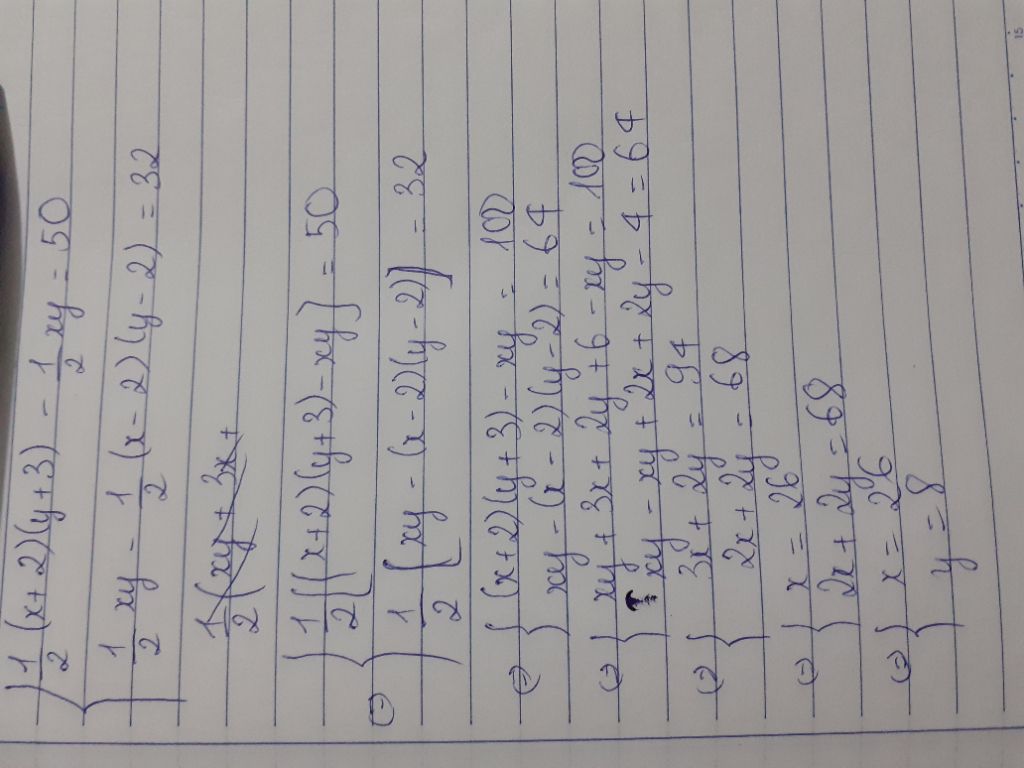 1/2 (x+2)(y+3) - 1/2 xy = 50
1/2 xy - 1/2 (x-2)(y-2) = 32
1/2 (xy + 3x +
⇔ { 1/2 [(x+2)(y+3) - xy] = 50
1/2 [xy - (x-2)(y-2)] = 32
⇔ { (x+2)(y+3) - xy = 100
xy - (x-2)(y-2) = 64
⇔ { xy + 3x + 2y + 6 - xy = 100
xy - xy + 2x + 2y - 4 = 64
⇔ { 3x + 2y = 94
2x + 2y = 68
⇔ { x = 26
2x + 2y = 68
⇔ { x = 26
y = 8
15